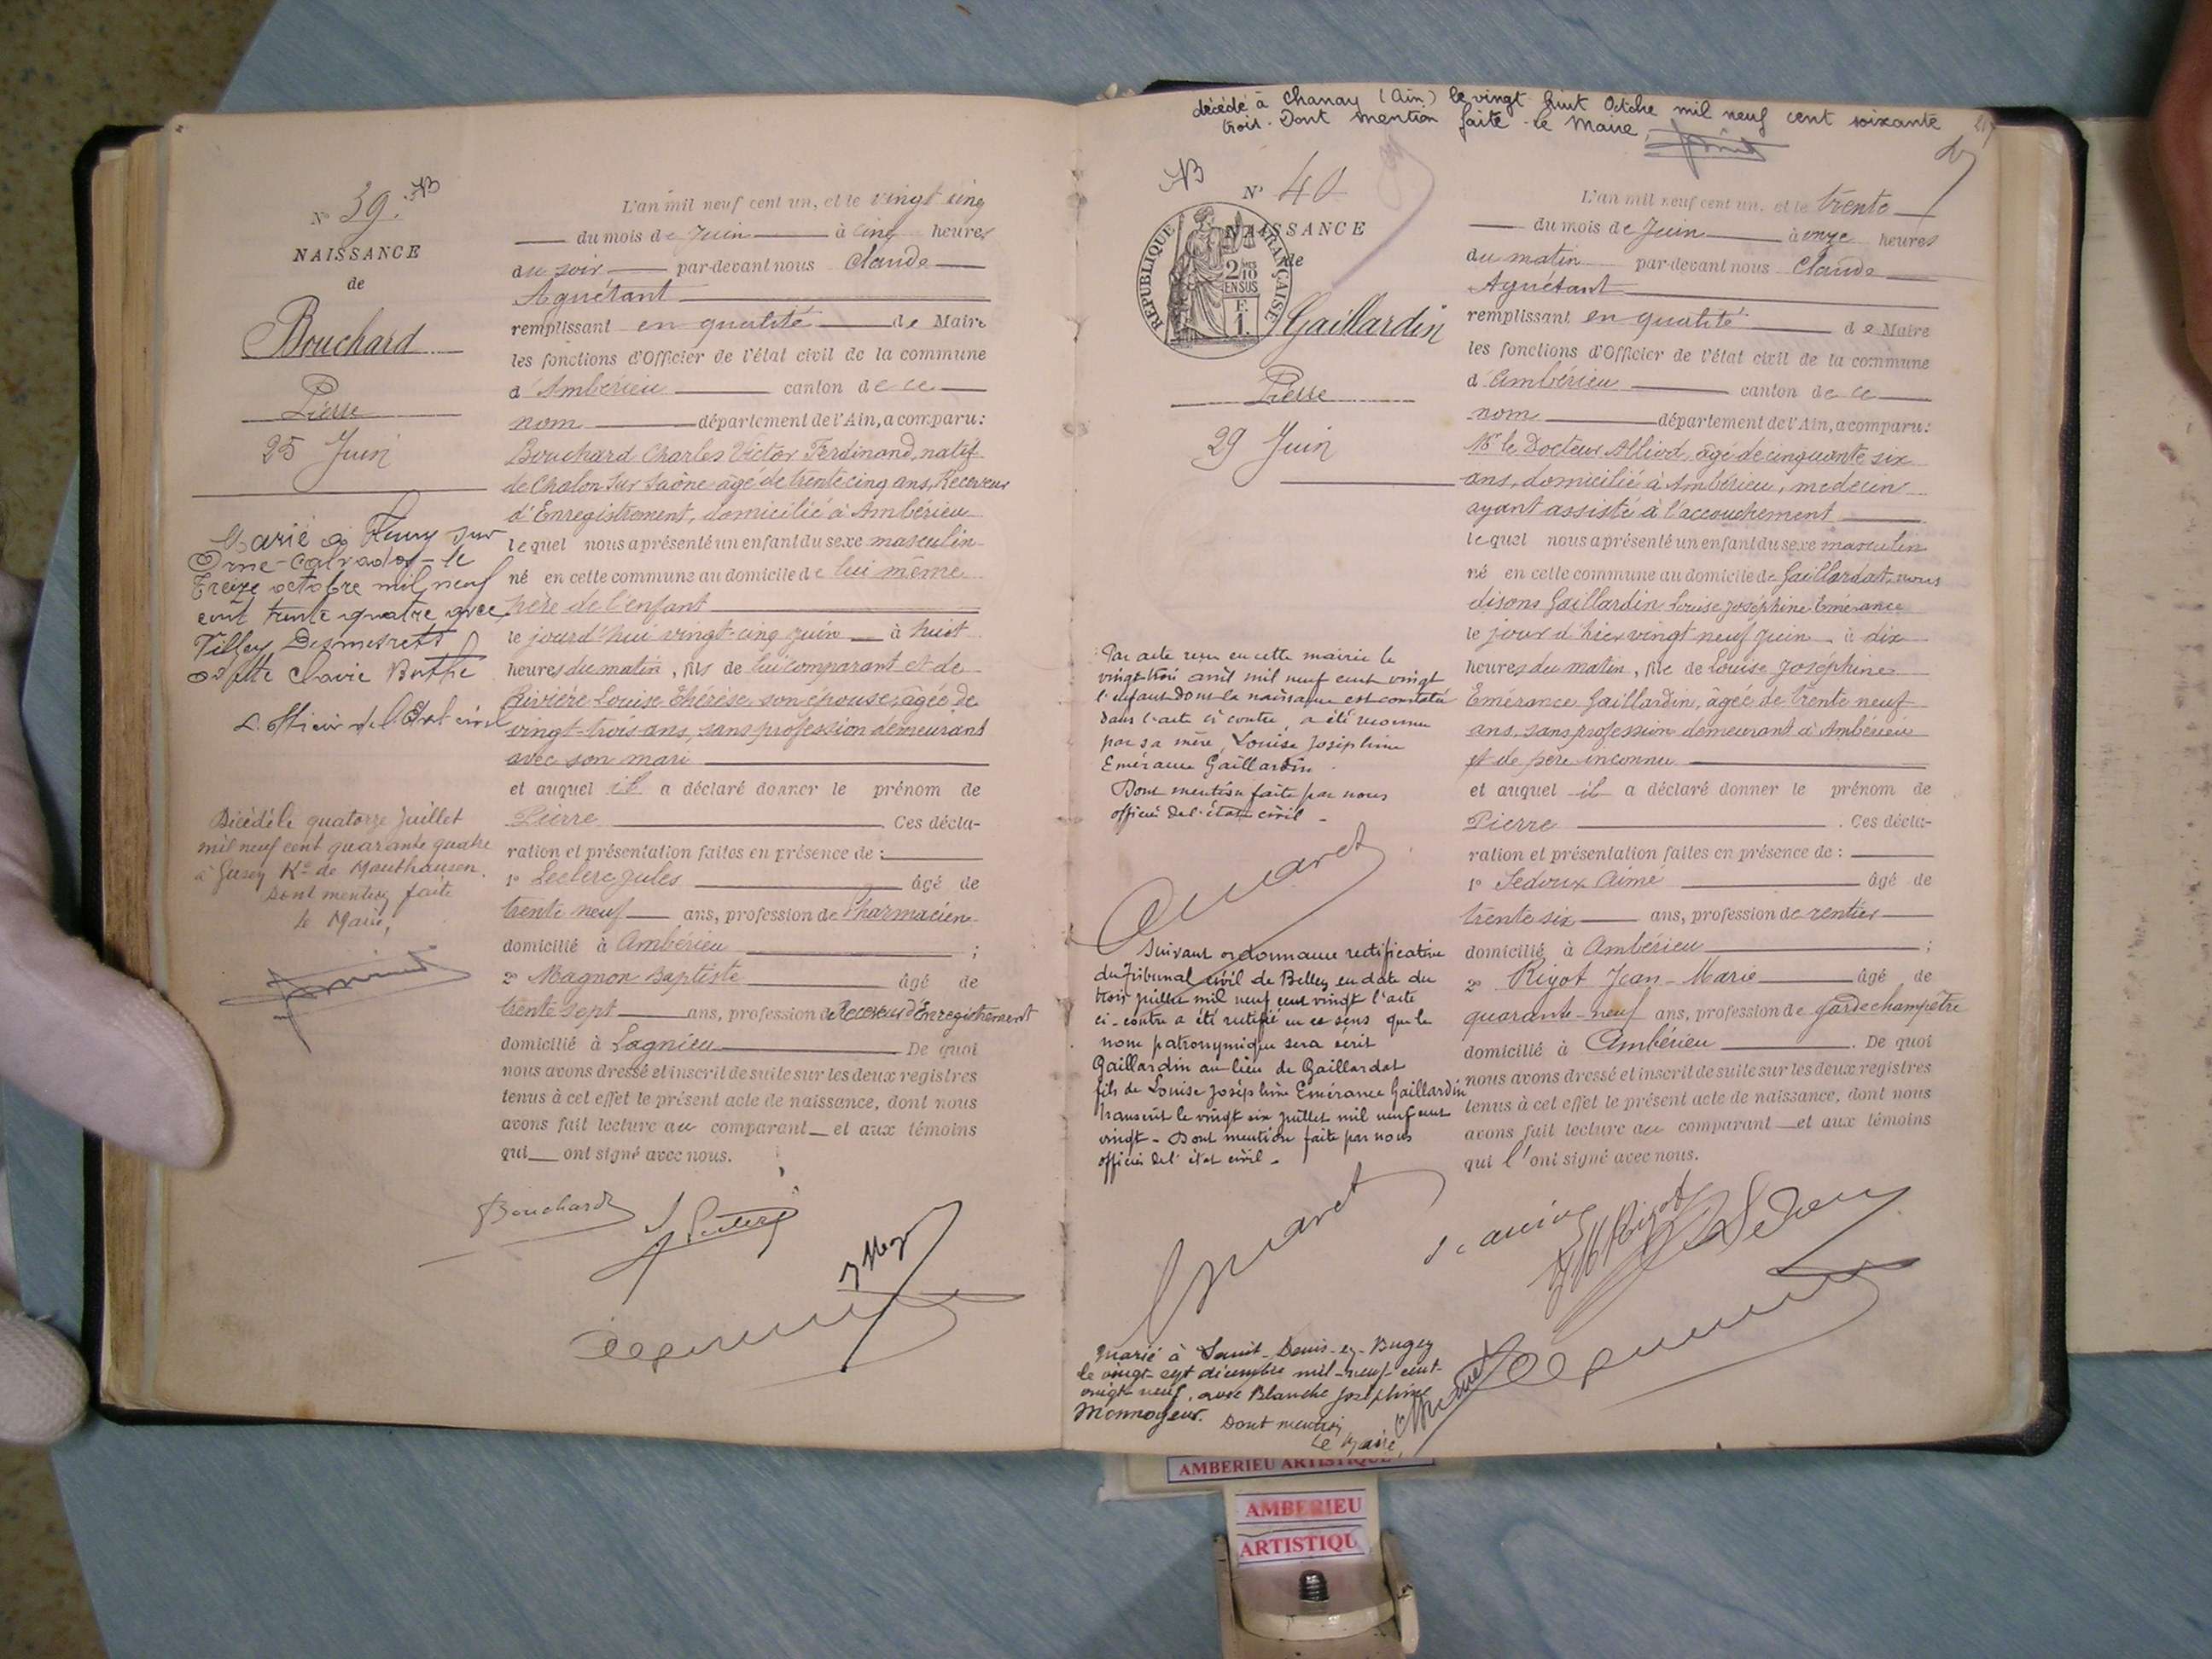 N° 39. NB
NAISSANCE
de
Bouchard
Pierre
25 Juin
Marié à Fleury sur
Orne-Calvados-le
Treize octobre mil neuf
cent trente quatre avec
Villey Desmeserets
Odette Marie Berthe
L'officier de l'Etat civil
Décédé le quatorze Juillet
mil neuf cent quarante quatre
à Gusen Ko de Mauthausen.
Dont mention faite
le Maire,
L'an mil neuf cent un, et le vingt cinq
du mois de Juin à cinq heures
du soir par-devant nous Claude
Aguétant
remplissant en qualité de Maire
les fonctions d'Officier de l'état civil de la commune
d'Ambérieu canton de ce
nom département de l'Ain, a comparu:
Bouchard Charles Victor Ferdinand, natif
de Chalon sur Saône âgé de trente cinq ans, Receveur
d'Enregistrement, domicilié à Ambérieu
lequel nous a présenté un enfant du sexe masculin
né en cette commune au domicile de lui même
père de l'enfant
le jourd'hui vingt-cinq juin à huit
heures du matin, fils de lui comparant et de
Rivière Louise Thérèse, son épouse, âgée de
vingt-trois ans, sans profession demeurant
avec son mari
et auquel il a déclaré donner le prénom de
Pierre Ces décla-
ration et présentation faites en présence de :
1° Leclerc Jules âgé de
trente neuf ans, profession de Pharmacien
domicilié à Ambérieu ;
2° Magnon Baptiste âgé de
trente sept ans, profession de Receveur d'Enregistrement
domicilié à Lagnieu De quoi
nous avons dressé et inscrit de suite sur les deux registres
tenus à cet effet le présent acte de naissance, dont nous
avons fait lecture au comparant et aux témoins
qui ont signé avec nous.
Bouchard
J Leclerc
décédé à Chanay (Ain) le vingt huit Octobre mil neuf cent soixante
trois. Dont mention faite le Maire,
NB
N° 40
NAISSANCE
de
REPUBLIQUE FRANÇAISE
2/10 EN SUS
F.
1.
Gaillardin
Pierre
29 Juin
Par acte reçu en cette mairie le
vingt trois avril mil neuf cent vingt
l'enfant dont la naissance est constatée
dans l'acte ci contre, a été reconnu
par sa mère, Louise Joséphine
Emérance Gaillardin.
Dont mention faite par nous
officier de l'état civil -
Suivant ordonnance rectificative
du Tribunal civil de Belley en date du
trois juillet mil neuf cent vingt l'acte
ci-contre a été rectifié en ce sens que le
nom patronymique sera écrit
Gaillardin au lieu de Gaillardat
fils de Louise Joséphine Emérance Gaillardin
Transcrit le vingt six juillet mil neuf cent
vingt - Dont mention faite par nous
officier de l'état civil -
Marié à Saint-Denis-en-Bugey
le vingt-sept décembre mil-neuf-cent-
vingt-neuf, avec Blanche Joséphine
Monnoyeur. Dont mention
Le Maire,
L'an mil neuf cent un, et le trente
du mois de Juin à onze heures
du matin par-devant nous Claude
Aguétant
remplissant en qualité de Maire
les fonctions d'Officier de l'état civil de la commune
d'Ambérieu canton de ce
nom département de l'Ain, a comparu:
Mr le Docteur Alliod, âgé de cinquante six
ans, domicilié à Ambérieu, médecin
ayant assisté à l'accouchement
lequel nous a présenté un enfant du sexe masculin
né en cette commune au domicile de Gaillardat, nous
disons Gaillardin Louise Joséphine Emérance
le jour d'hier vingt neuf juin à dix
heures du matin, fils de Louise Joséphine
Emérance Gaillardin, âgée de trente neuf
ans, sans profession demeurant à Ambérieu
et de père inconnu
et auquel il a déclaré donner le prénom de
Pierre . Ces décla-
ration et présentation faites en présence de :
1° Sedoux Aimé âgé de
trente six ans, profession de rentier
domicilié à Ambérieu ;
2° Rigot Jean-Marie âgé de
quarante-neuf ans, profession de garde champêtre
domicilié à Ambérieu . De quoi
nous avons dressé et inscrit de suite sur les deux registres
tenus à cet effet le présent acte de naissance, dont nous
avons fait lecture au comparant et aux témoins
qui l'ont signé avec nous.
AMBERIEU ARTISTIQUE
AMBERIEU
ARTISTIQU